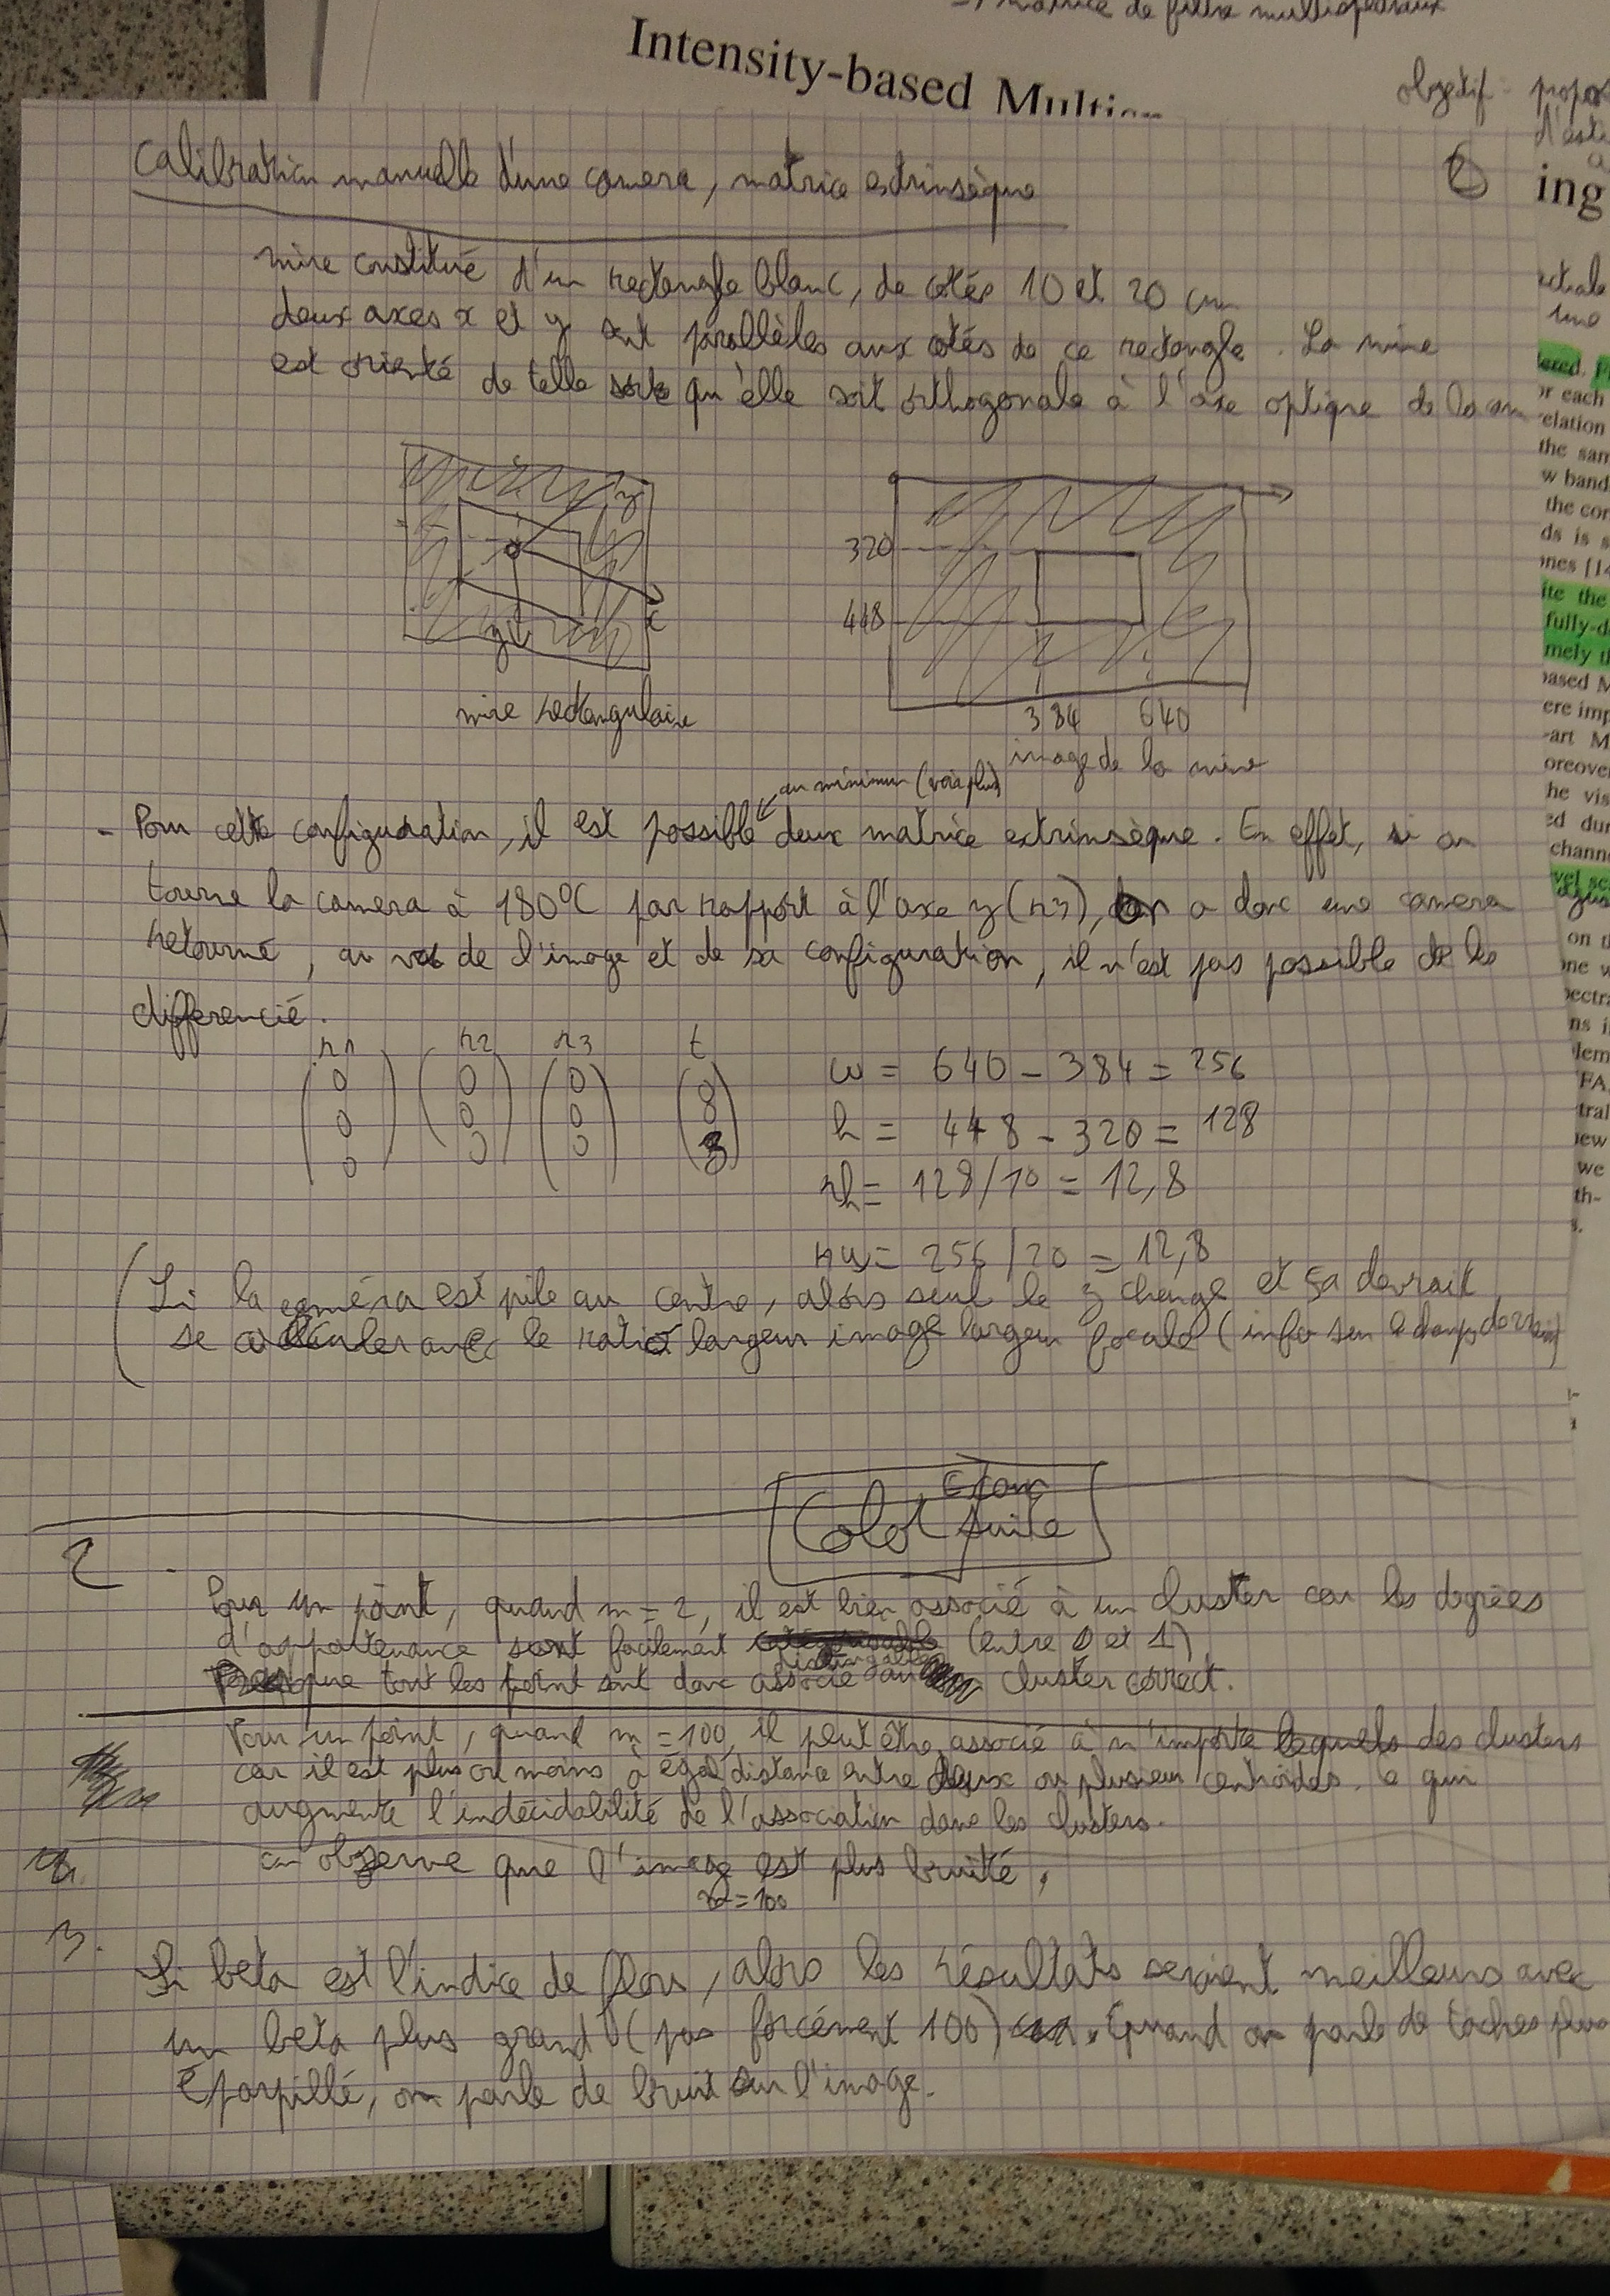 matrice de filtre multispectraux
Intensity-based Multis
objectif : propos
d'est
ing
Calibration manuelle d'une camera, matrice extrinsèque
mire constitué d'un rectangle blanc, de cotés 10 et 20 cm
deux axes x et y sont parallèles aux cotés de ce rectangle. La mire
est orienté de telle sorte qu'elle soit orthogonale à l'axe optique de la cam
z
x
y
mire rectangulaire
320
448
384 640
image de la mire
au minimum (voir plus)
- Pour cette configuration, il est possible deux matrice extrinsèque. En effet, si on
tourne la camera à 180°C par rapport à l'axe z (r3), on a donc une camera
retourné, au vu de l'image et de sa configuration, il n'est pas possible de les
differencié.
r1 r2 r3 t
0 0 0 0
0 0 0 0
0 0 0 3
w = 640 - 384 = 256
h = 448 - 320 = 128
rh = 128/10 = 12,8
rw = 256/20 = 12,8
( Si la caméra est pile au centre, alors seul le z change et ça devrait
se calculer avec le ratio largeur image largeur focale (info sur le champ de vision)
Color Espace suite
2.
Pour un point, quand m = 2, il est bien associé à un cluster car les degrées
d'appartenance sont facilement (entre 0 et 1)
Presque tout les point sont donc associé au cluster correct.
Pour un point, quand m = 100, il peut être associé à n'importe lequels des clusters
car il est plus ou moins à égal distance entre deux ou plusieur centroïdes. ce qui
augmente l'indécidabilité de l'association dans les clusters.
on observe que l'image est plus bruité.
m = 100
3.
Si beta est l'indice de flou, alors les résultats seraient meilleurs avec
un beta plus grand (pas forcément 100). Quand on parle de taches plus
éparpillé, on parle de bruit sur l'image.
ectrale
une
ered.
or each
relation
the sam
w band
the cor
ds is s
nes [14
ite the
fully-d
mely th
based M
ere imp
-art M
oreover
he vis
ed dur
channe
vel sc
on th
one w
pectra
ns i
lem
FA
tral
new
we
th-
s.